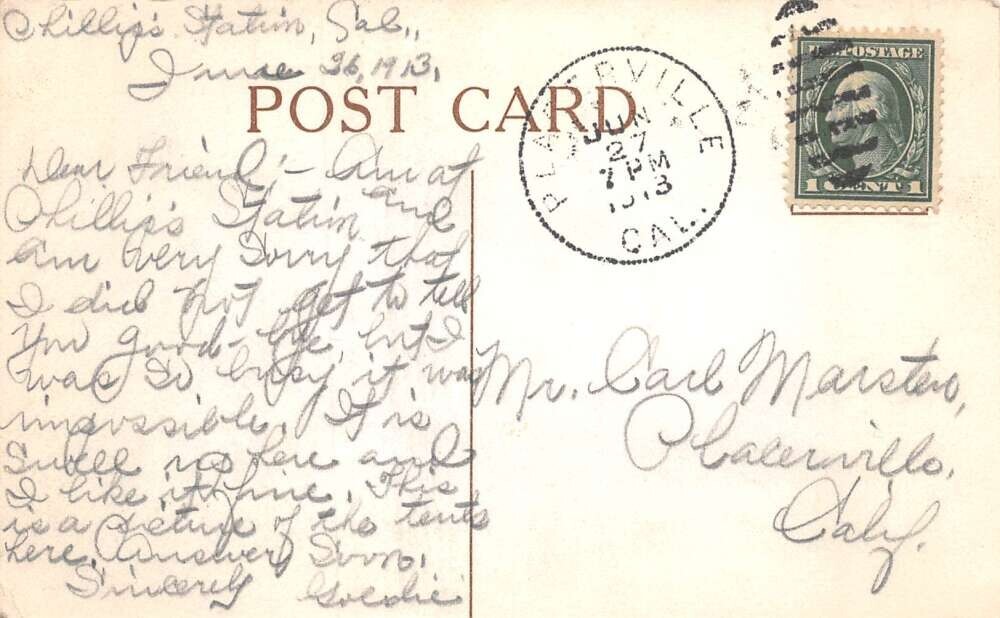 Phillip's Station, Cal.,
June 26, 1913.
POST CARD
PLACERVILLE
JUN
27
7 PM
1913
CAL.
U.S. POSTAGE
1 CENT 1
Dear Friend:- Am at
Phillip's Station and
am very sorry that
I did not get to tell
you good-bye, but I
was so busy it was
impossible. It is
swell up here and
I like it fine. This
is a picture of the tents
here. Answer soon.
Sincerely Goldie
Mr. Carl Marsten,
Placerville,
Calif.